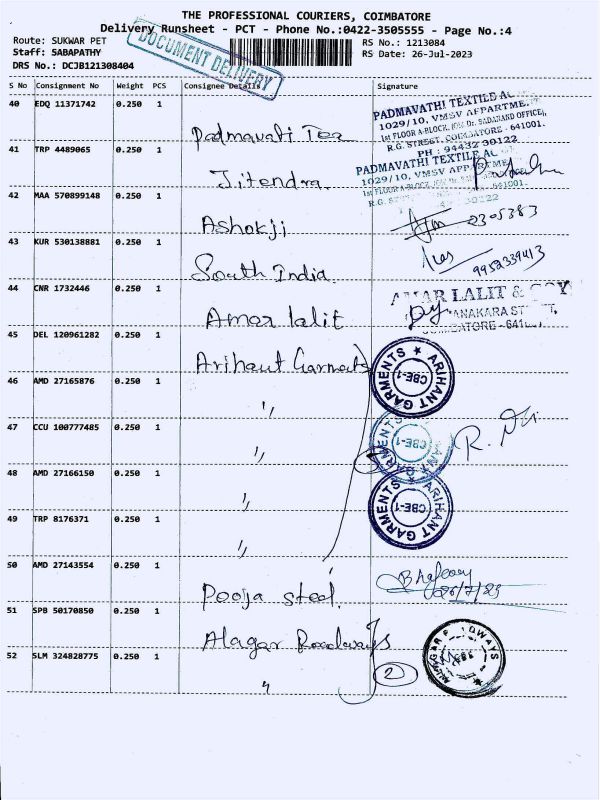 THE PROFESSIONAL COURIERS, COIMBATORE
Delivery Runsheet - PCT - Phone No.:0422-3505555 - Page No.:4
Route: SUKWAR PET
RS No.: 1213084
Staff: SABAPATHY
RS Date: 26-Jul-2023
DRS No.: DCJB121308404
DOCUMENT DELIVERY
S No Consignment No Weight PCS Consignee Details Signature
40 EDQ 11371742 0.250 1
Padmavati Tex
PADMAVATHI TEXTILE
1029/10, VMSV APPARTME
1st FLOOR A-BLOCK,
R.G. STREET, COIMBATORE - 641001.
PH : 94432 30122
41 TRP 4489065 0.250 1
Jitendra
PADMAVATHI TEXTILE
1029/10, VMSV APPARTME
1st FLOOR A-BLOCK,
R.G.
42 MAA 570899148 0.250 1
Ashokji
2305383
43 KUR 530138881 0.250 1
South India
9952339413
44 CNR 1732446 0.250 1
Amar lalit
AMAR LALIT & COY
45 DEL 120961282 0.250 1
Arihant Garments
ARIHANT GARMENTS
CBE-1
46 AMD 27165876 0.250 1
"
47 CCU 100777485 0.250 1
"
CBE-1
48 AMD 27166150 0.250 1
"
ARIHANT GARMENTS
CBE-1
49 TRP 8176371 0.250 1
"
50 AMD 27143554 0.250 1
Pooja steel.
26/7/23
51 SPB 50170850 0.250 1
Alagar Roadways
52 SLM 324828775 0.250 1
"
2